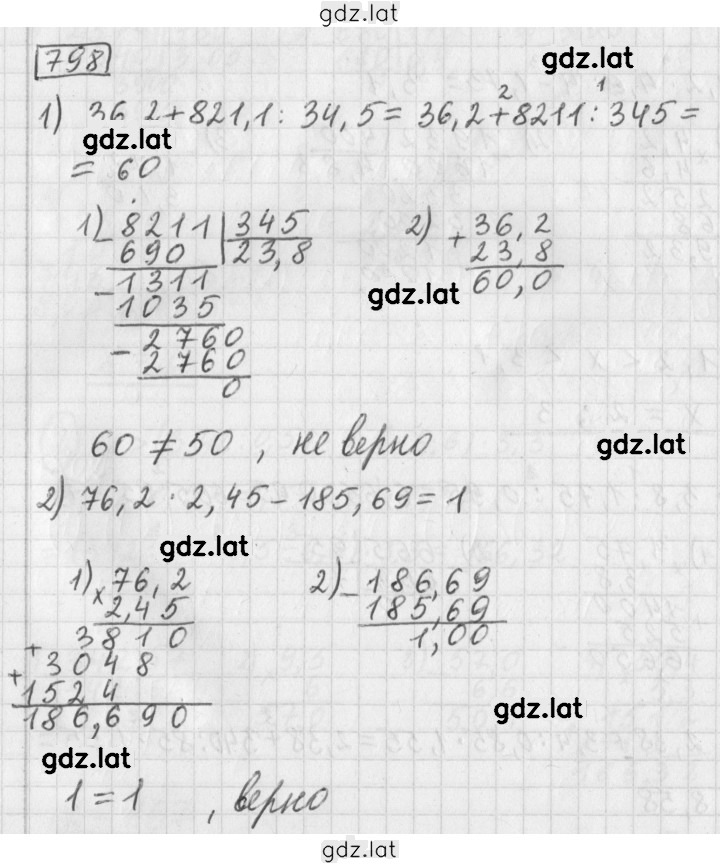 gdz.lat
798
gdz.lat
1) 36,2+821,1 : 34,5 = 36,2 + 8211 : 345 =
2 1
gdz.lat
= 60
1) 8211 | 345
- 690 23,8
1311
- 1035
2760
- 2760
0
2) 36,2
+ 23,8
60,0
gdz.lat
60 ≠ 50 , не верно
gdz.lat
2) 76,2 · 2,45 - 185,69 = 1
gdz.lat
1) 76,2
× 2,45
3810
+ 3048
+ 1524
186,690
2) 186,69
- 185,69
1,00
gdz.lat
gdz.lat
1 = 1 , верно
gdz.lat